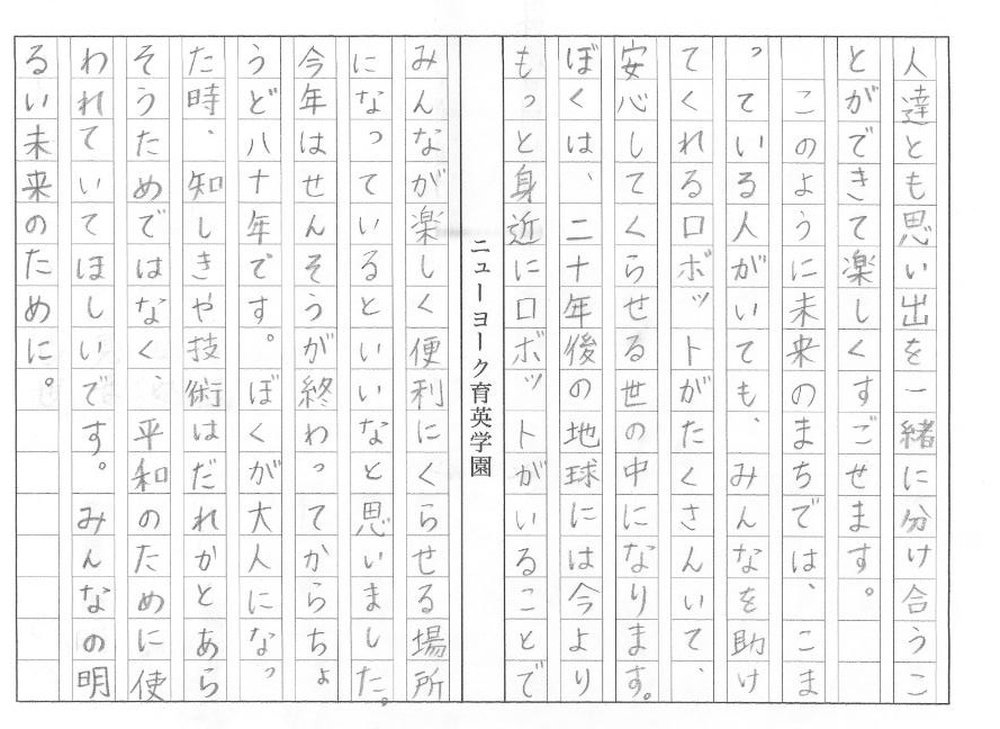 人達とも思い出を一緒に分け合うこ
とができて楽しくすごせます。
このように未来のまちでは、こま
っている人がいても、みんなを助け
てくれるロボットがたくさんいて、
安心してくらせる世の中になります。
ぼくは、二十年後の地球には今より
もっと身近にロボットがいることで
ニューヨーク育英学園
みんなが楽しく便利にくらせる場所
になっているといいなと思いました。
今年はせんそうが終わってからちょ
うど八十年です。ぼくが大人になっ
た時、知しきや技術はだれかとあら
そうためではなく、平和のために使
われていてほしいです。みんなの明
るい未来のために。